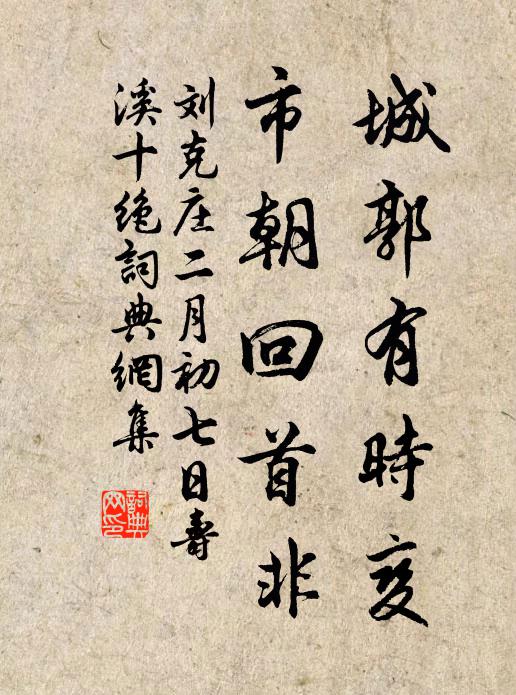 城郭有時变
市朝回首非
刘克庄二月初七日寿
溪十绝詞典網集
詞典网印